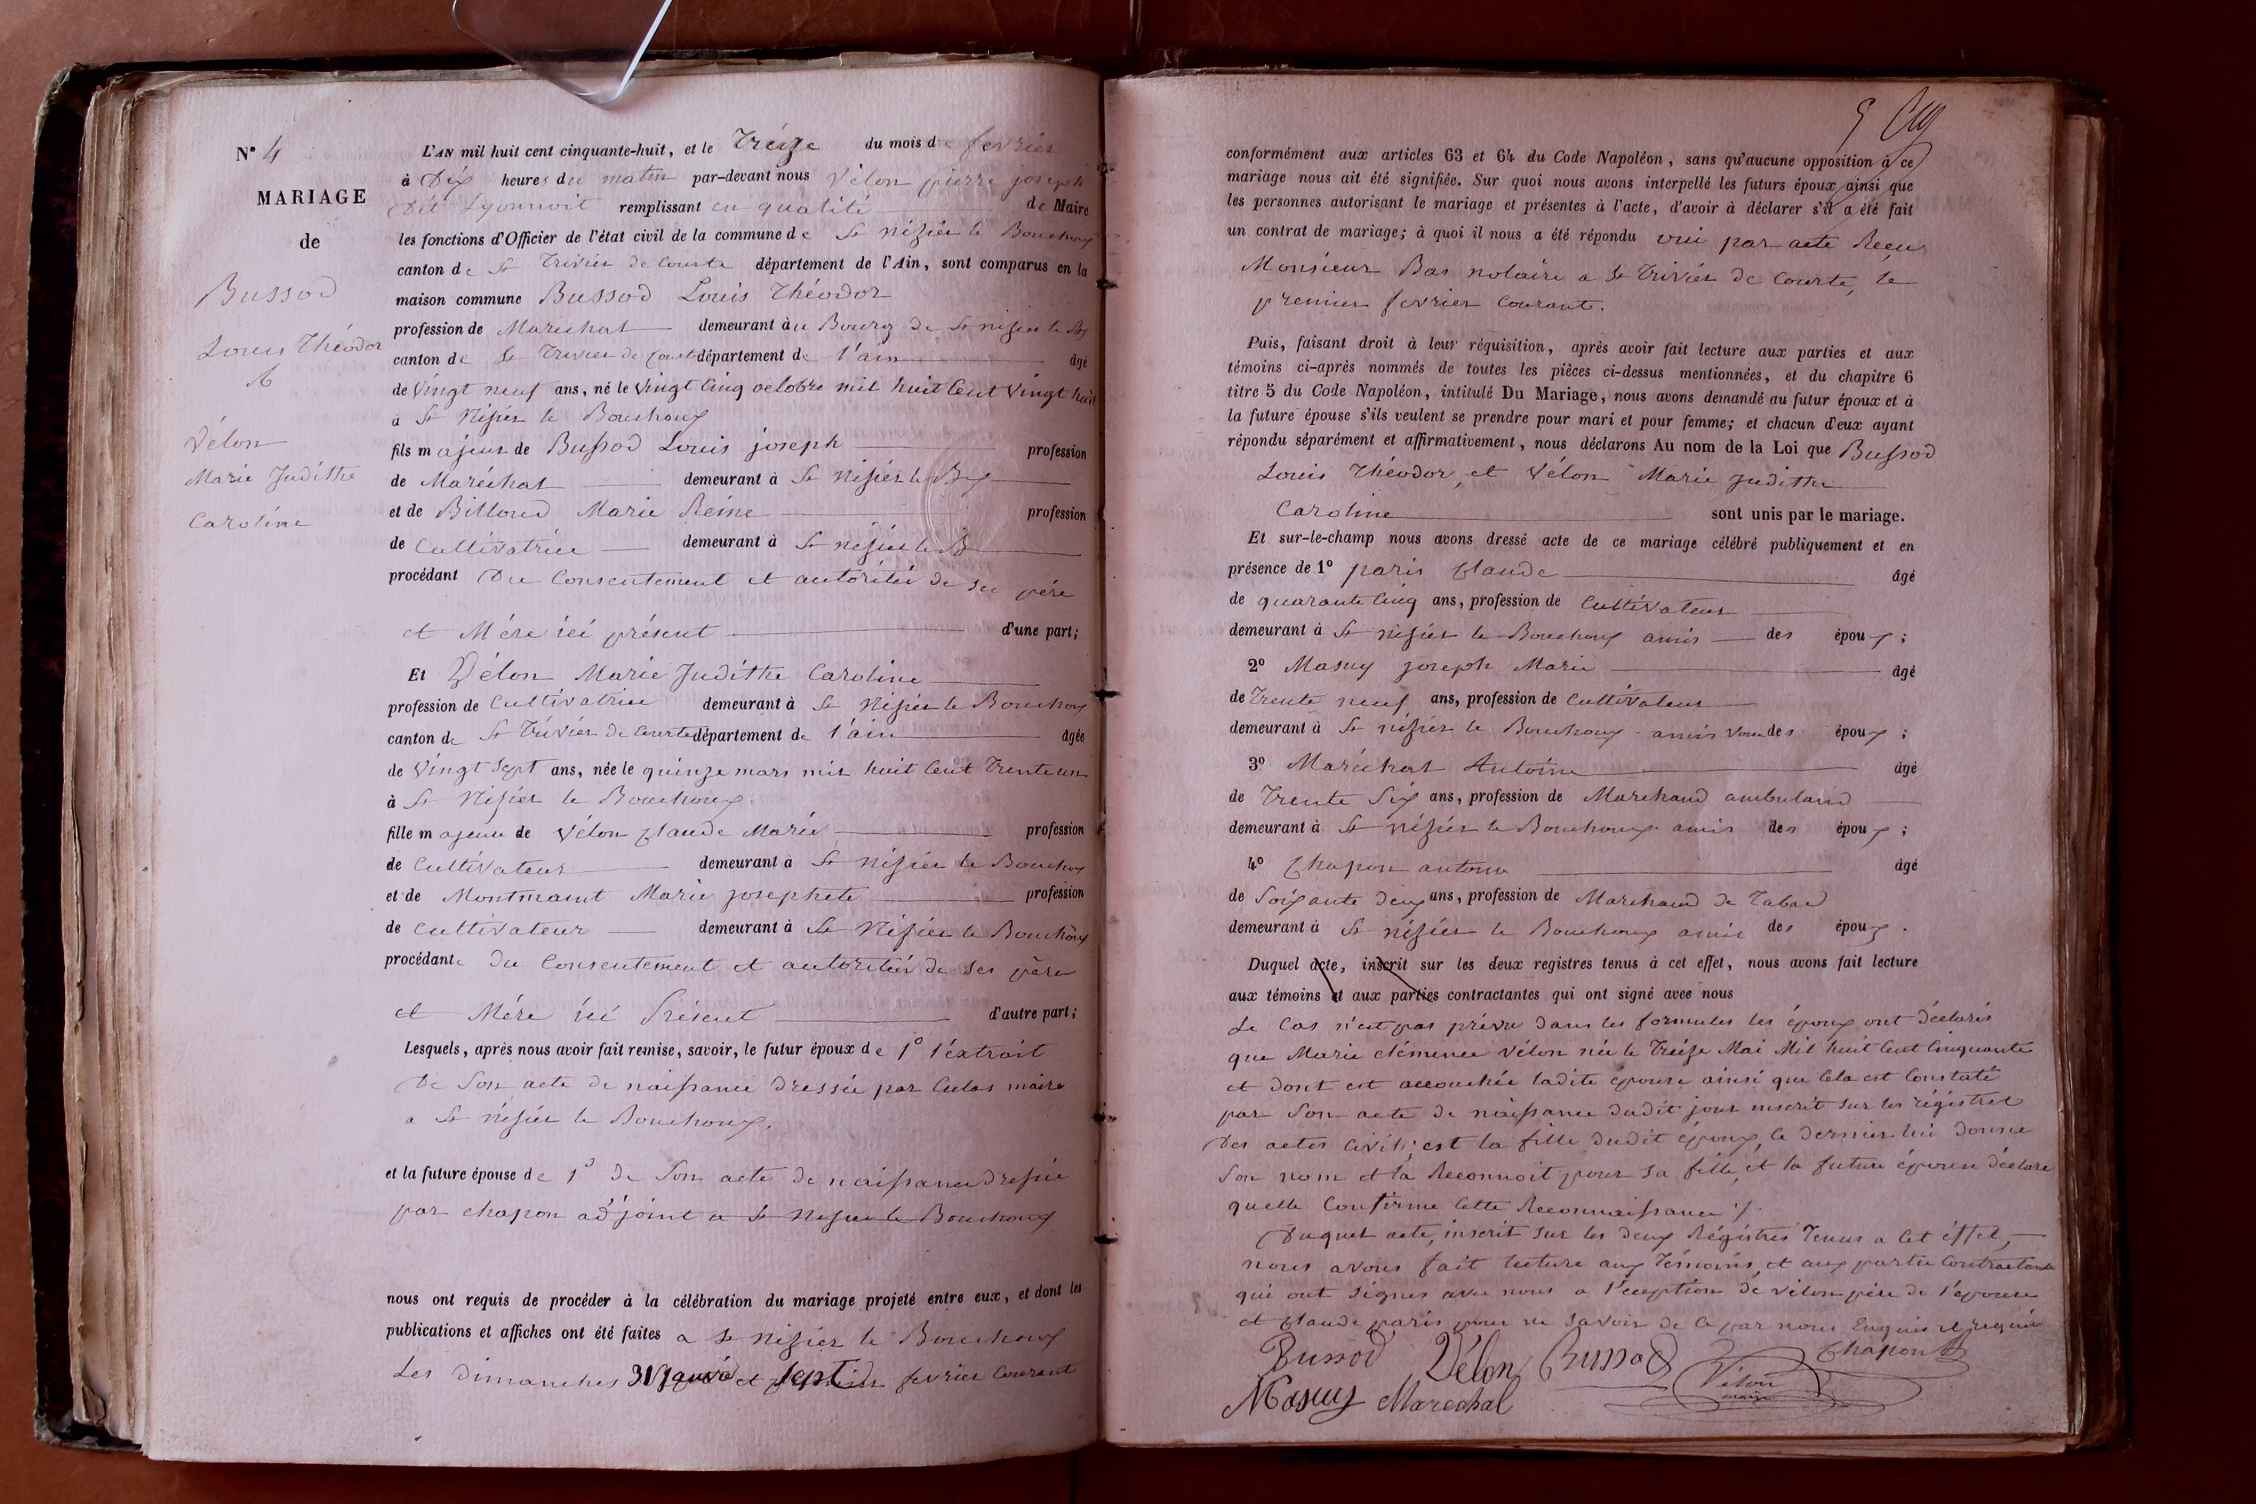 N° 4
MARIAGE
de
Bussod
Louis Théodor
&
Vélon
Marie Judithe
Caroline
L'AN mil huit cent cinquante-huit, et le Tréize du mois de fevrier
à Dix heures du matin par-devant nous Vélon pierre joseph
Dit Lyonnoit remplissant en qualité de Maire
les fonctions d'Officier de l'état civil de la commune de St nizier le Bouchoux
canton de St Trivier de Courte département de l'Ain, sont comparus en la
maison commune Bussod Louis Théodor
profession de Maréchal demeurant au Bourg de St nizier le Bx
canton de St Trivier de Court département de l'ain âgé
de Vingt neuf ans, né le Vingt Cinq octobre mil huit Cent Vingt huit
à St Nizier le Bouchoux
fils majeur de Bussod Louis joseph profession
de Maréchal demeurant à St Nizier le Bx
et de Billoud Marie Reine profession
de Cultivatrice demeurant à St nizier le B
procédant Du Consentement et autoritéé de ses pére
et Mére ici présent d'une part;
Et Vélon Marie Judithe Caroline
profession de Cultivatrice demeurant à St Nizier le Bouchoux
canton de St Trivier de Courte département de l'ain âgée
de Vingt Sept ans, née le quinze mars mil huit Cent Trente un
à St Nizier le Bouchoux
fille majeure de Vélon Claude Marie profession
de Cultivateur demeurant à St Nizier le Bouchoux
et de Montmaint Marie josephete profession
de Cultivateur demeurant à St Nizier le Bouchoux
procédante du Consentement et autoritéé de Ses pére
et Mére ici Présent d'autre part;
Lesquels, après nous avoir fait remise, savoir, le futur époux de 1° l'extrait
De Son acte de naissance Dressée par Culas maire
a St nizier le Bouchoux,
et la future épouse de 1° de Son acte de naissance dressée
par chapon adjoint a St Nizier le Bouchoux
nous ont requis de procéder à la célébration du mariage projeté entre eux, et dont les
publications et affiches ont été faites a St Nizier le Bouchoux
Les dimanches 31 janvier et Sept fevrier Courant
5
conformément aux articles 63 et 64 du Code Napoléon, sans qu'aucune opposition à ce
mariage nous ait été signifiée. Sur quoi nous avons interpellé les futurs époux ainsi que
les personnes autorisant le mariage et présentes à l'acte, d'avoir à déclarer s'il a été fait
un contrat de mariage; à quoi il nous a été répondu oui par acte Reçu
Monsieur Bas notaire a St Trivier de Courte, le
premier fevrier Courant.
Puis, faisant droit à leur réquisition, après avoir fait lecture aux parties et aux
témoins ci-après nommés de toutes les pièces ci-dessus mentionnées, et du chapitre 6
titre 5 du Code Napoléon, intitulé Du Mariage, nous avons demandé au futur époux et à
la future épouse s'ils veulent se prendre pour mari et pour femme; et chacun d'eux ayant
répondu séparément et affirmativement, nous déclarons Au nom de la Loi que Bussod
Louis Théodor, et Vélon Marie Judithe
Caroline sont unis par le mariage.
Et sur-le-champ nous avons dressé acte de ce mariage célébré publiquement et en
présence de 1° paris Claude âgé
de quarante Cinq ans, profession de Cultivateur
demeurant à St nizier le Bouchoux amis des époux;
2° Masuy joseph Marie âgé
de Trente neuf ans, profession de Cultivateur
demeurant à St nizier le Bouchoux amis des époux;
3° Maréchal Antoine âgé
de Trente Six ans, profession de Marchand ambuland
demeurant à St nizier le Bouchoux amis des époux;
4° Chapon antoine âgé
de Soixante deux ans, profession de Marchand de Tabac
demeurant à St nizier le Bouchoux amis des époux.
Duquel acte, inscrit sur les deux registres tenus à cet effet, nous avons fait lecture
aux témoins et aux parties contractantes qui ont signé avec nous
Le Cas n'est pas prévu dans les formules les époux ont déclarés
que Marie clémence Vélon née le Treize Mai Mil huit Cent Cinquante
et dont est accouchée ladite épouse ainsi que Cela est Constaté
par Son acte de naissance dudit jour inscrit sur les régistres
Des actes Civils; est la fille dudit époux, le dernier lui donne
Son nom et la Reconnoit pour sa fille, et la future épouse déclare
quelle Confirme Cette Reconnaissance ·/·
Duquel acte, inscrit sur les deux Régistres Tenus a Cet éffet,
nous avons fait lecture aux Témoins, et aux partie Contractante
qui ont signes avec nous a l'éception de vélon père de l'épouse
et Claude paris pour ne savoir de ce par nous Enquis et requis
Bussod Vélon Bussod Chapon
Masuy Marechal Vélon
maire